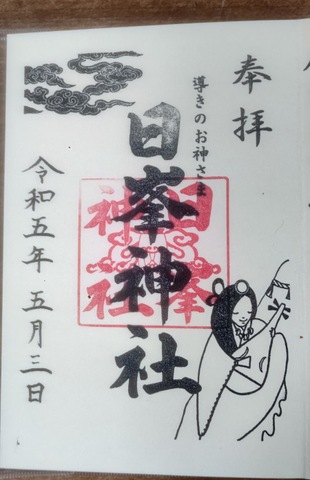 奉拝
導きのお神さま
日峯神社
日峯
神社
令和五年 五月三日